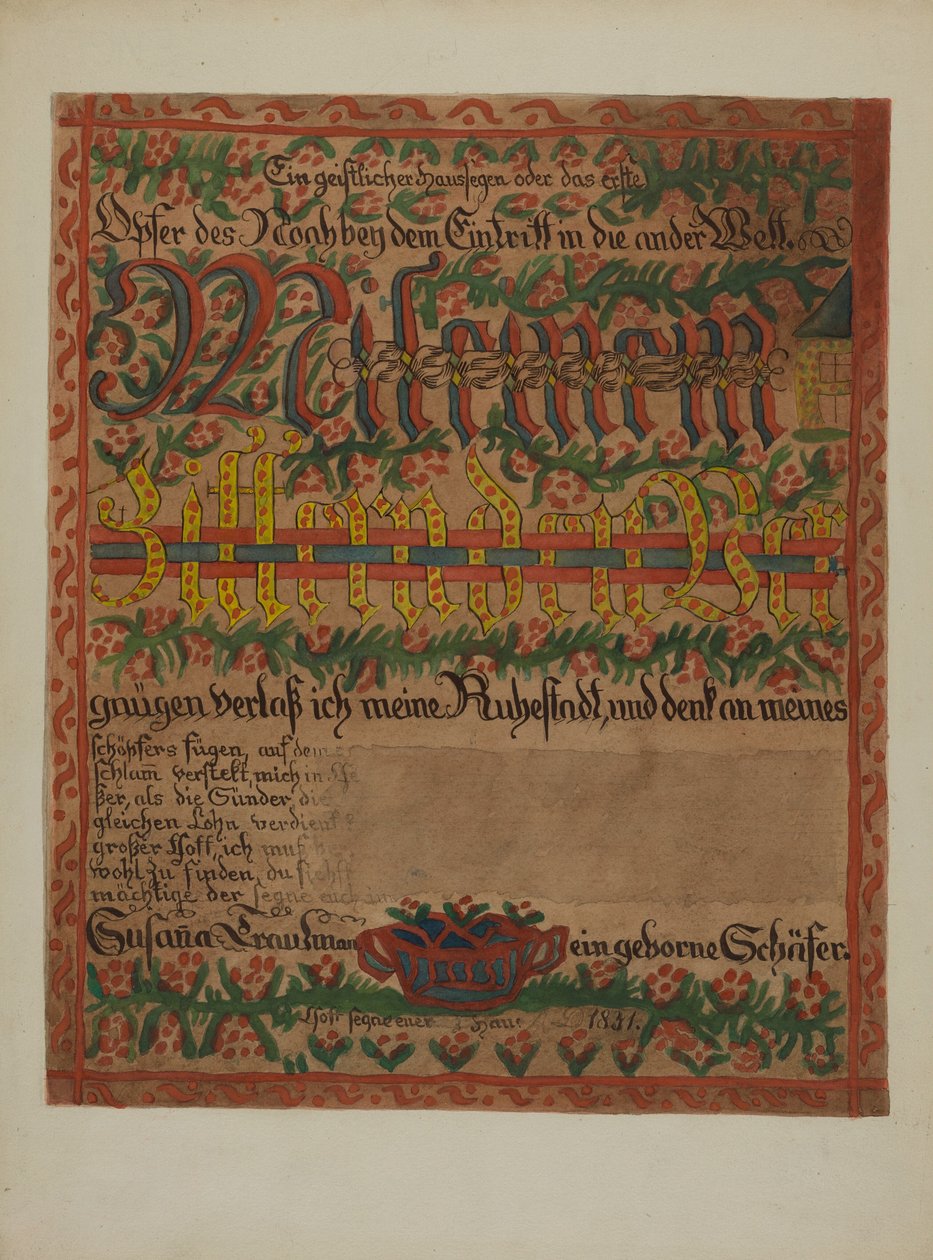 Ein geistlicher Haussegen oder das erste
Opfer des Noah bey dem Eintritt in die ander Welt.
Mit einem
Zitternden Ver
gnügen verlaß ich meine Ruhestadt, und denk an meines
schöpfers fügen, auf dem
schlam̄ verstekt, mich in
ßer, als die Sünder, die
gleichen Lohn verdient
großer Gott, ich muß
wohl zu finden, du siehst
mächtige der segne euch im
Susan̄a Trautman ein geborne Schäfer.
Gott segne euer Haus A D 1831.